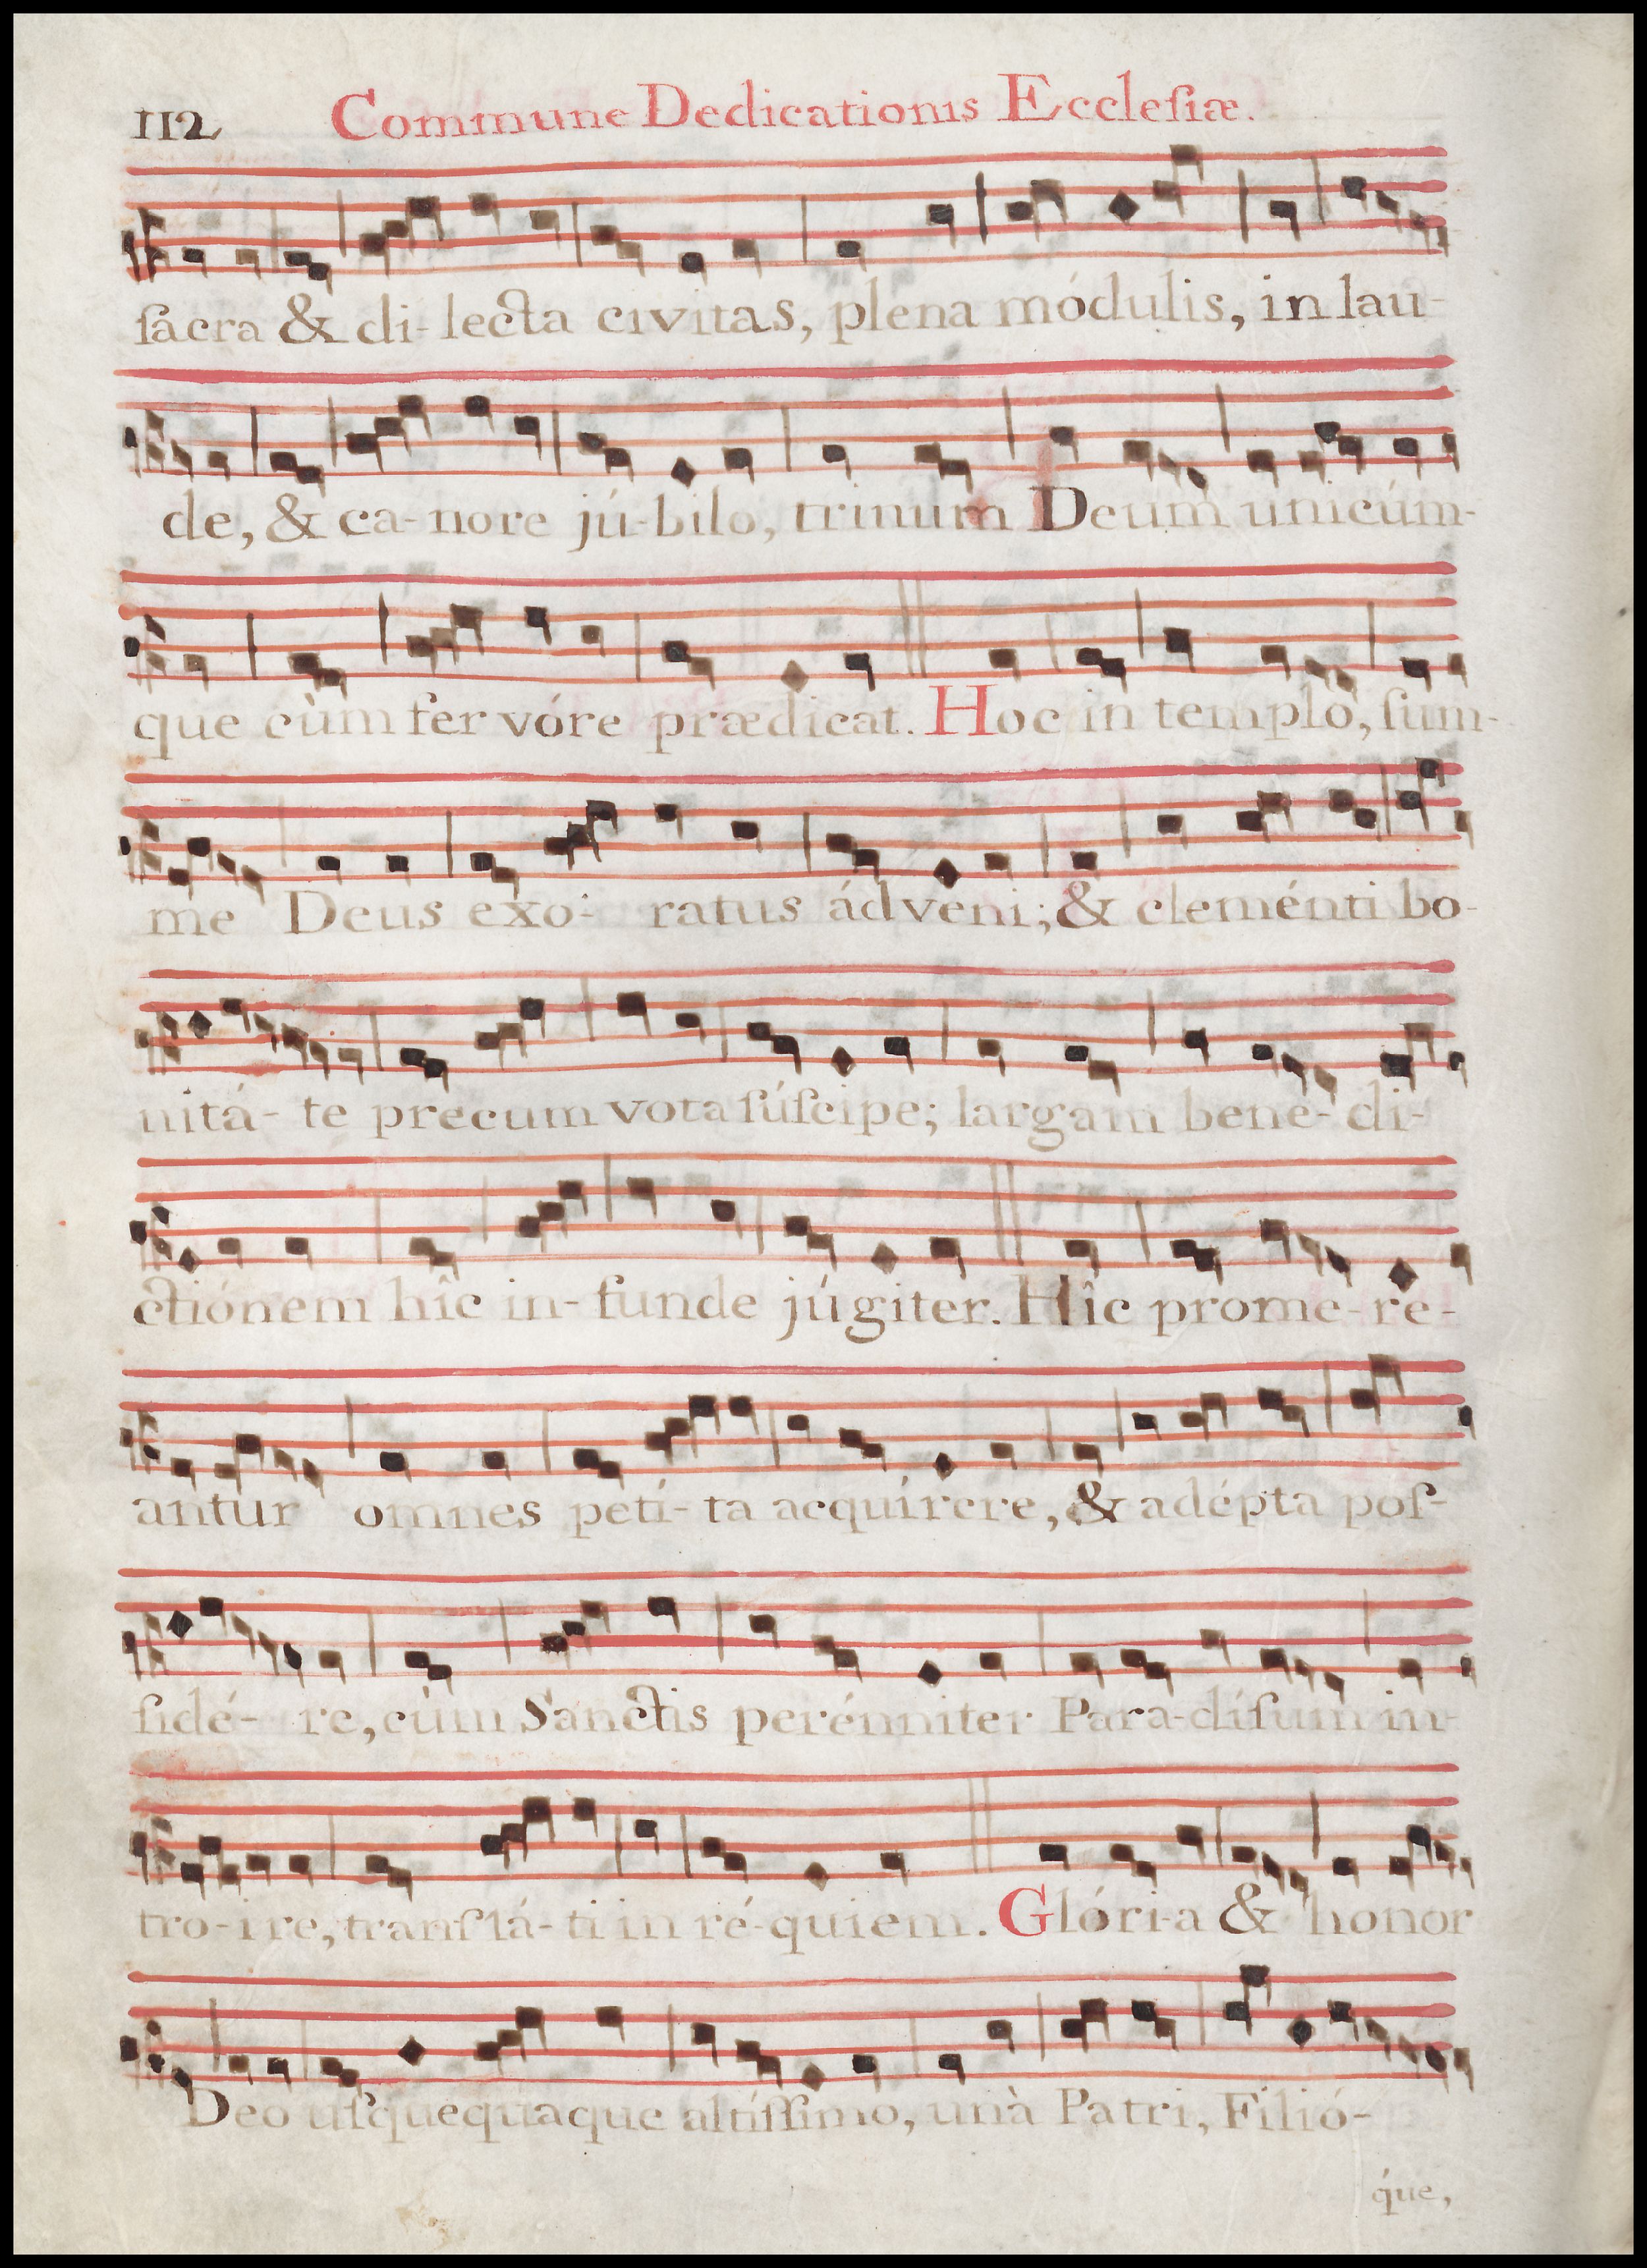 112 Commune Dedicationis Eccleſiæ.
ſacra & di-lecta civitas, plena módulis, in lau-
de, & ca-nore jú-bilo, trinum Deum unicúm-
que cùm fer vóre prædicat. Hoc in templo, ſum-
me Deus exo- ratus ádveni; & cleménti bo-
nitá- te precum vota ſúſcipe; largam bene- di-
ctiónem hîc in- funde júgiter. Hîc prome-re-
antur omnes petí- ta acquírere, & adépta poſ-
ſidé- re, cùm Sanctis perénniter Para-díſum in-
tro-ire, tranſlá- ti in ré-quiem. Glóri-a & honor
Deo uſquequaque altíſſimo, unà Patri, Filió-
que,